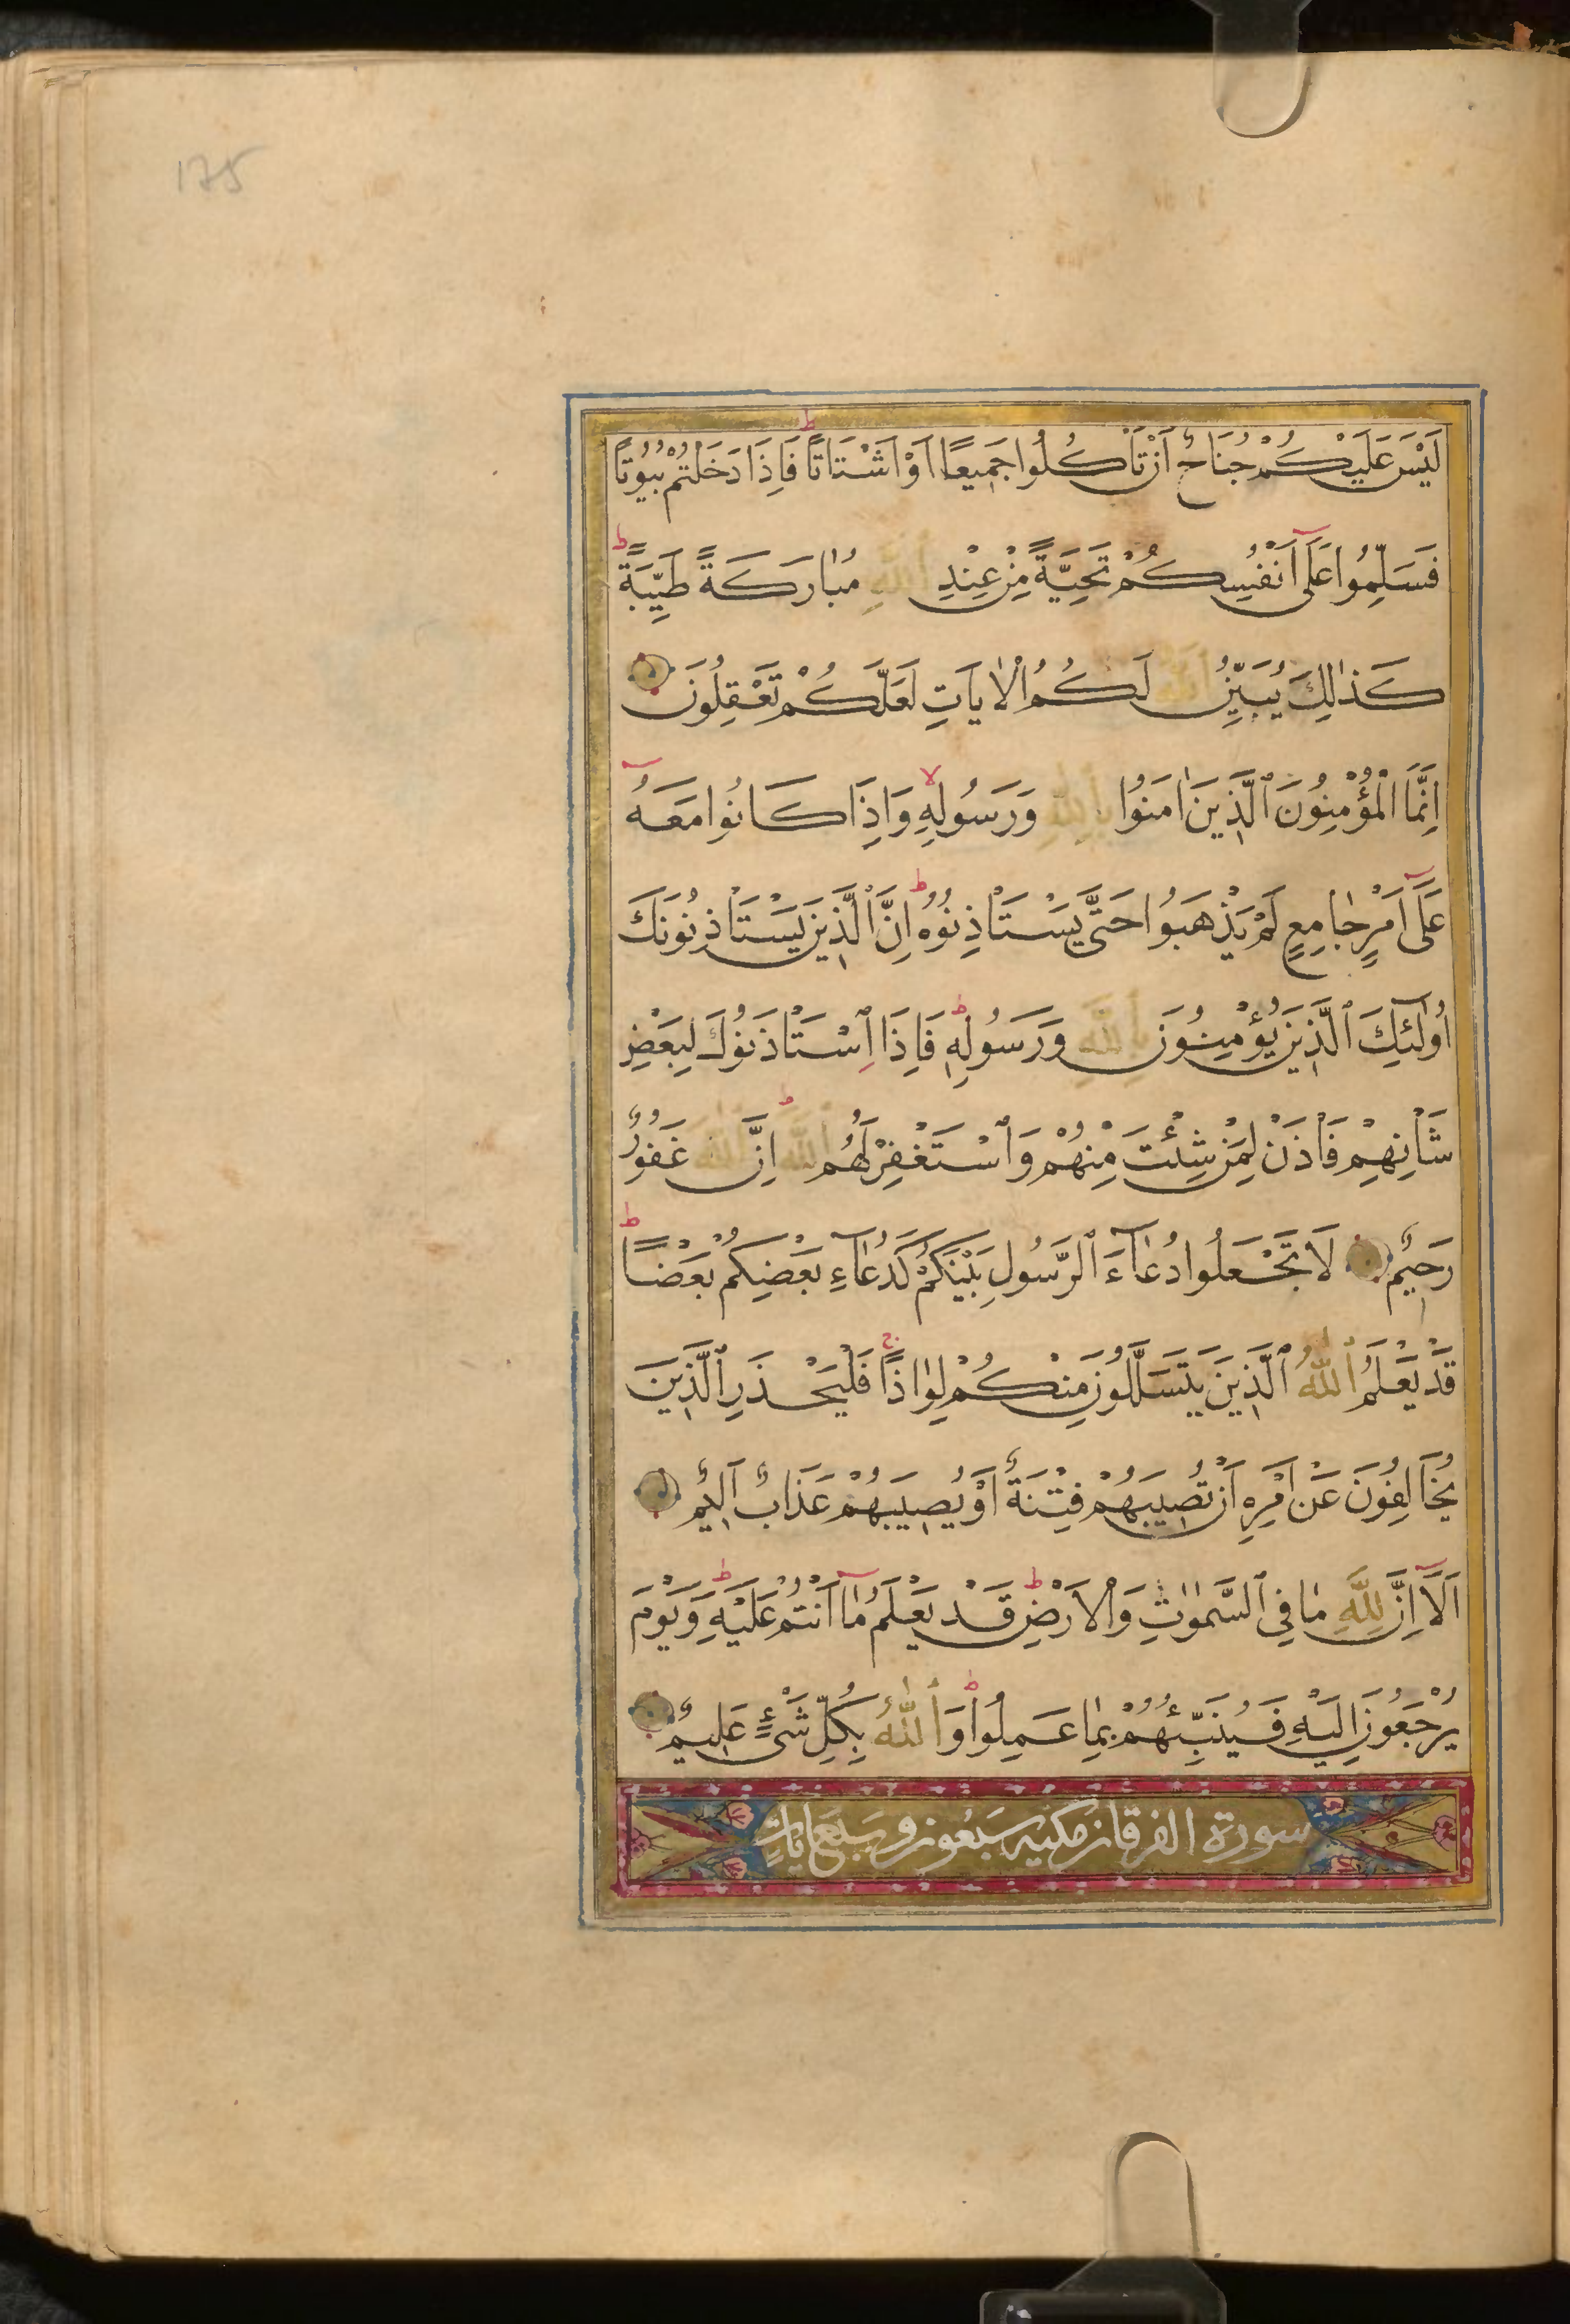 175
لَيْسَ عَلَيْكُمْ جُنَاحٌ اَنْ تَاْكُلُوا جَمِيعًا اَوْ اَشْتَاتًا ط فَاِذَا دَخَلْتُمْ بُيُوتًا
فَسَلِّمُوا عَلَى اَنْفُسِكُمْ تَحِيَّةً مِنْ عِنْدِ اللّٰهِ مُبَارَكَةً طَيِّبَةً ط
كَذَالِكَ يُبَيِّنُ اللّٰهُ لَكُمُ الْاٰيَاتِ لَعَلَّكُمْ تَعْقِلُونَ
اِنَّمَا الْمُؤْمِنُونَ الَّذِينَ اٰمَنُوا بِاللّٰهِ وَرَسُولِهِ لا وَاِذَا كَانُوا مَعَهُ
عَلَى اَمْرٍ جَامِعٍ لَمْ يَذْهَبُوا حَتَّى يَسْتَاْذِنُوهُ ط اِنَّ الَّذِينَ يَسْتَاْذِنُونَكَ
اُولٰئِكَ الَّذِينَ يُؤْمِنُونَ بِاللّٰهِ وَرَسُولِهِ ط فَاِذَا اسْتَاْذَنُوكَ لِبَعْضِ
شَاْنِهِمْ فَاْذَنْ لِمَنْ شِئْتَ مِنْهُمْ وَاسْتَغْفِرْ لَهُمُ اللّٰهَ ط اِنَّ اللّٰهَ غَفُورٌ
رَحِيمٌ لَا تَجْعَلُوا دُعَاءَ الرَّسُولِ بَيْنَكُمْ كَدُعَاءِ بَعْضِكُمْ بَعْضًا ط
قَدْ يَعْلَمُ اللّٰهُ الَّذِينَ يَتَسَلَّلُونَ مِنْكُمْ لِوَاذًا ج فَلْيَحْذَرِ الَّذِينَ
يُخَالِفُونَ عَنْ اَمْرِهِ اَنْ تُصِيبَهُمْ فِتْنَةٌ اَوْ يُصِيبَهُمْ عَذَابٌ اَلِيمٌ
اَلَا اِنَّ لِلّٰهِ مَا فِي السَّمٰوَاتِ وَالْاَرْضِ ط قَدْ يَعْلَمُ مَا اَنْتُمْ عَلَيْهِ ط وَيَوْمَ
يُرْجَعُونَ اِلَيْهِ فَيُنَبِّئُهُمْ بِمَا عَمِلُوا ط وَاللّٰهُ بِكُلِّ شَيْءٍ عَلِيمٌ
سورة الفرقان مكيه سبعون وسبع ايات